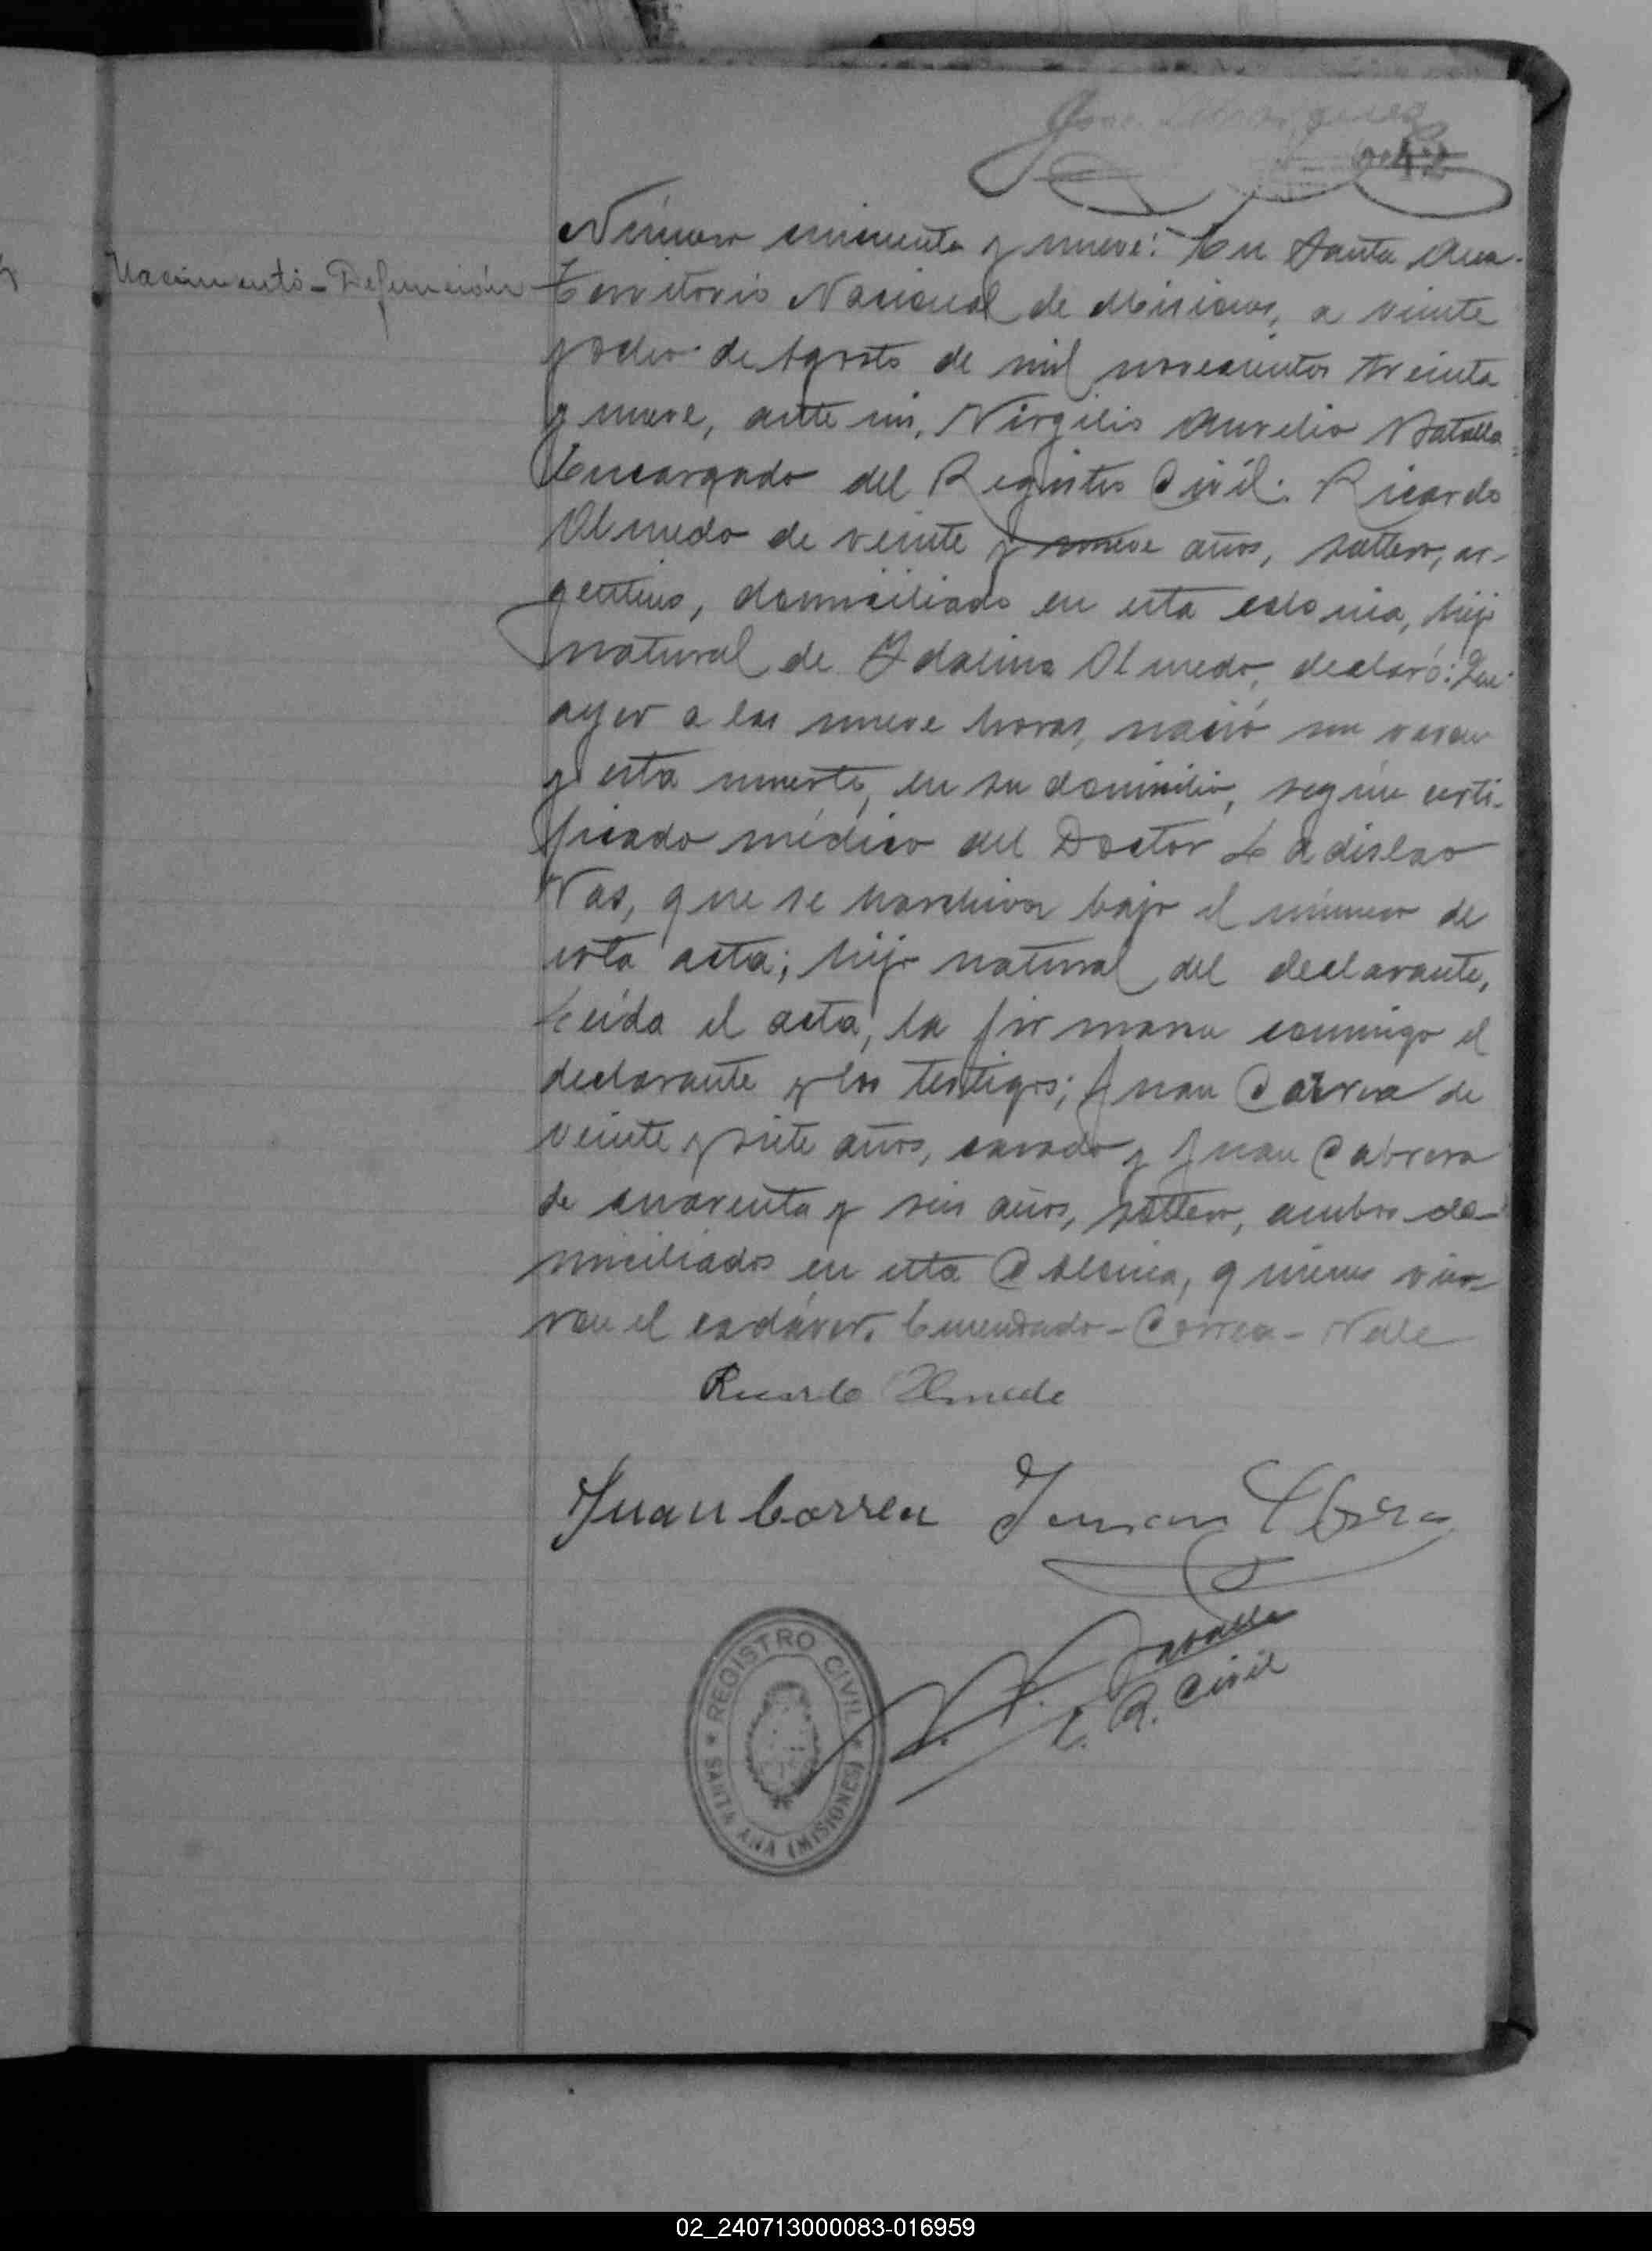 42
Nacimiento-Defunción
Número cincuenta y nueve: En Santa Ana.
Territorio Nacional de Misiones, a veinte
y ocho de Agosto de mil novecientos treinta
y nueve, ante mi, Virgilio Aurelio
Encargado del Registro Civil: Ricardo
Olmedo de veinte y nueve años, soltero, ar-
gentino, domiciliado en esta colonia, hijo
natural de Idalina Olmedo, declaró: Que
ayer a las nueve horas, nació un varon
y esta muerto, en su domicilio, según certi-
ficado médico del Doctor Ladislao
que se harchiva bajo el número de
esta acta; hijo natural del declarante,
Leída el acta, la firmaron conmigo el
declarante y los testigos; Juan Correa de
veinte y siete años, casado y Juan Cabrera
de cuarenta y seis años, soltero, ambos do-
miciliados en esta Colonia, quienes vie-
ron el cadáver. Enmendado-Correa-Vale
Ricardo Olmedo
Juan Correa
E. R. Civil
REGISTRO CIVIL
SANTA ANA (MISIONES)
02_240713000083-016959